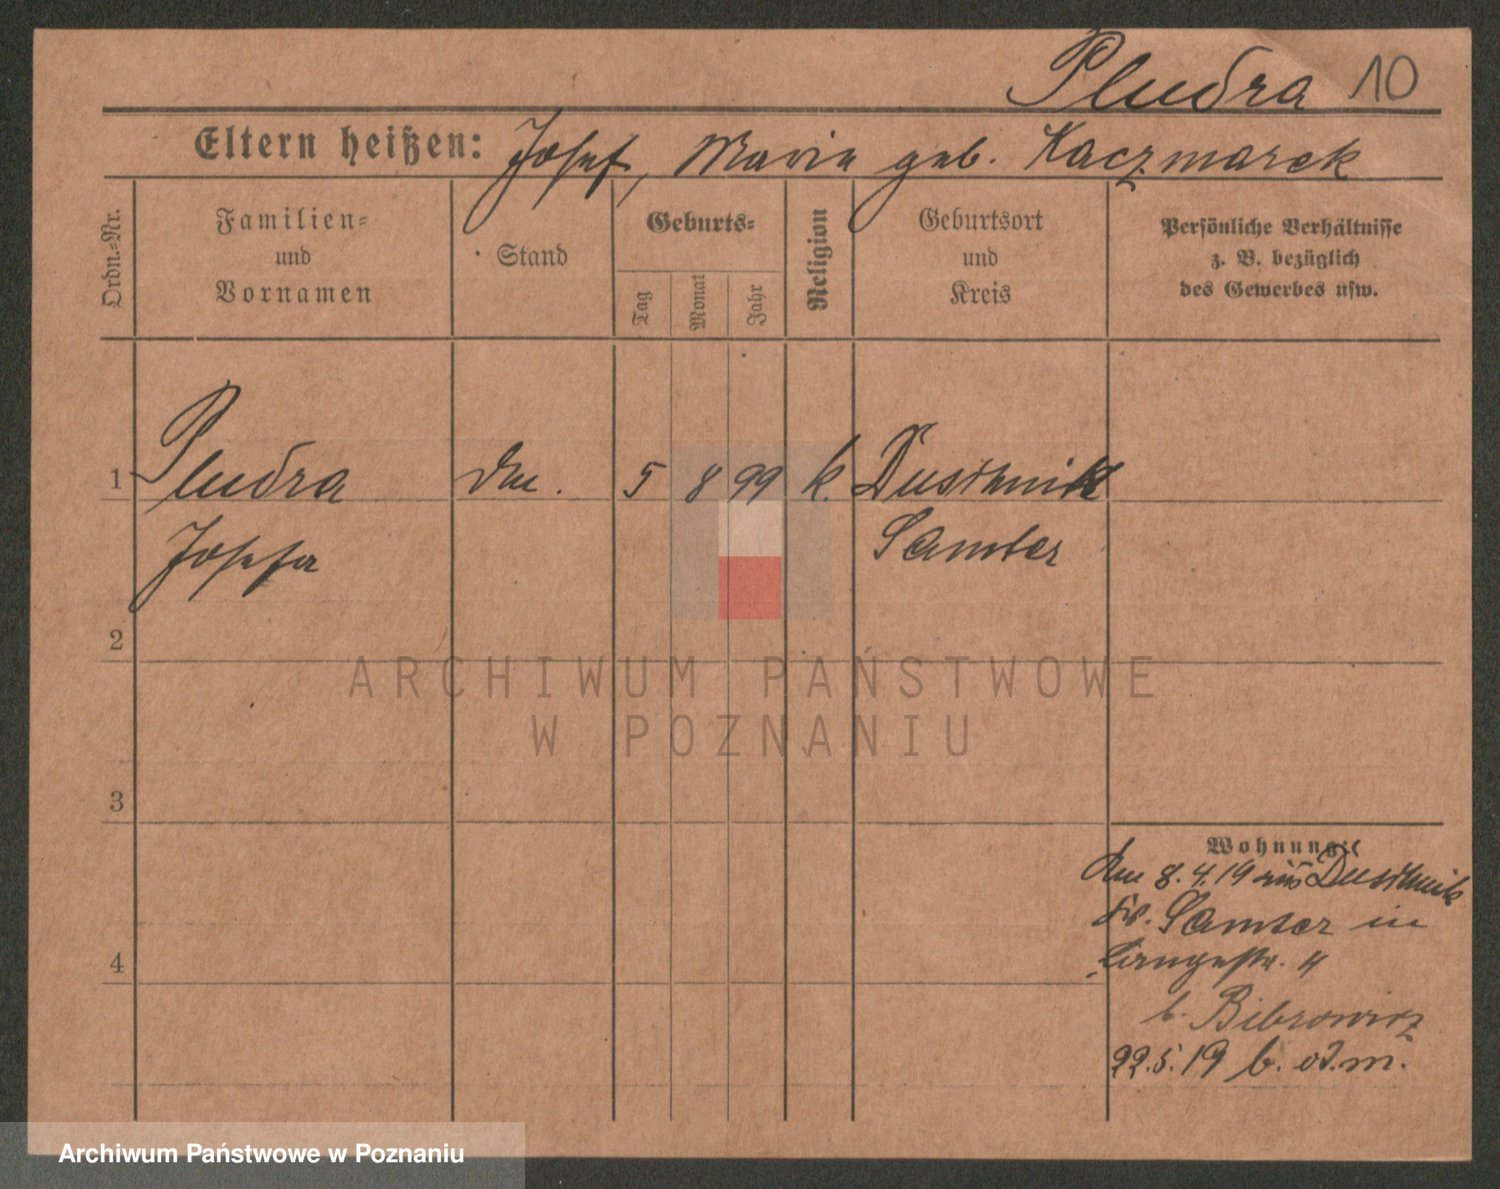 Pludra 10
Eltern heißen: Josef, Marie geb. Kaczmarek
Ordn.-Nr.
Familien-
und
Vornamen
Stand
Geburts-
Tag
Monat
Jahr
Religion
Geburtsort
und
Kreis
Persönliche Verhältnisse
z. B. bezüglich
des Gewerbes usw.
1 Pludra 5 8 99 k. Duschnik
Josefa Samter
2
3
4
Wohnung:
Am 8.4.19 aus Duschnik
Kr. Samter in
Langestr. 4
b. Bibrowicz
22.5.19 b.
ARCHIWUM PAŃSTWOWE
W POZNANIU
Archiwum Państwowe w Poznaniu